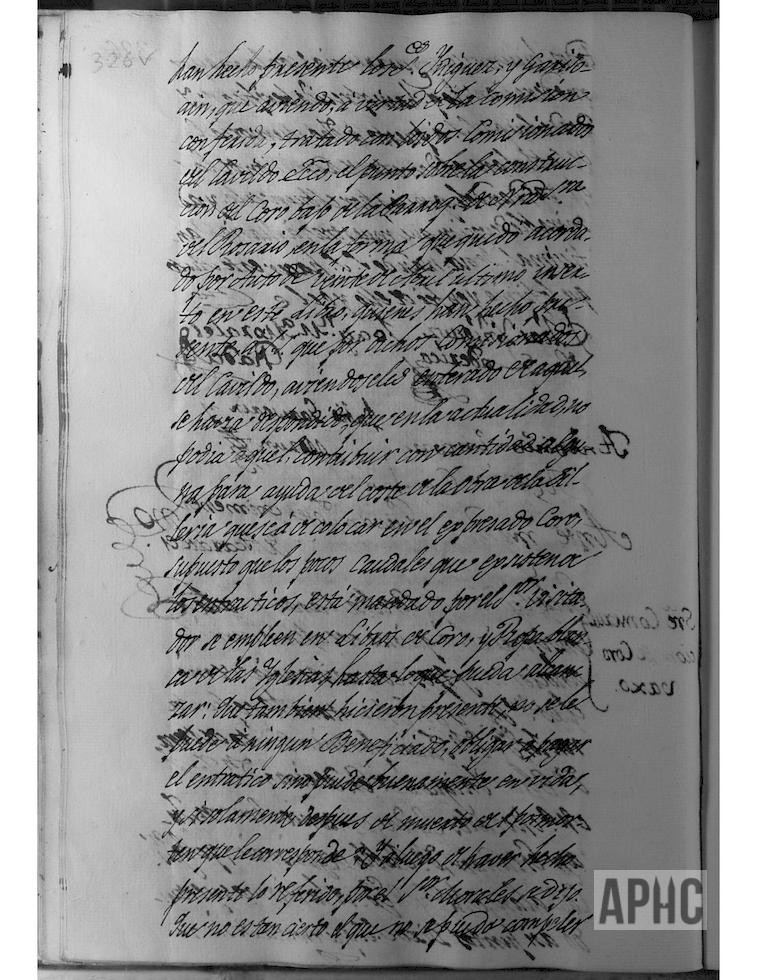 328v
han hecho presente los S.res Yñiguez, y Garro
ain, que aviendo, a virtud de la Comision
conferida, tratado con los dos Comisionados
del Cavildo Ecc.o el punto sobre la construc-
cion del Coro bajo de la Parroq.
del Rosario, en la forma que quedó acorda-
do por Auto de veinte de ultimo inser-
to en este Libro, quienes han hecho pre-
sente que por dichos Comisionados
del Cavildo, aviendoseles enterado de aquel,
se havia respondido, que en la actualidad, no
podia aquel contribuir con cantidad algu-
na para ayuda del coste de la obra de la sille-
ria que se á de colocar en el expresado Coro,
supuesto que los pocos caudales que existen de
los entraticos, está mandado por el S.or Visita-
dor se empleen en Libros de Coro, y Ropa blan-
ca de las Yglesias hasta lo que pueda alcan-
zar: Que tambien hicieron presente, no se le
puede a ningun Beneficiado, obligar a pagar
el entratico sino puede buenamente en vida,
y si solamente despues de muerto de
que le corresponde: Y luego de haver hecho
presente lo referido, por el S.or Morales, se dijo
Que no es tan cierto el que no se pueda compeler
Sre Comis
Coro
vaxo.
APHC